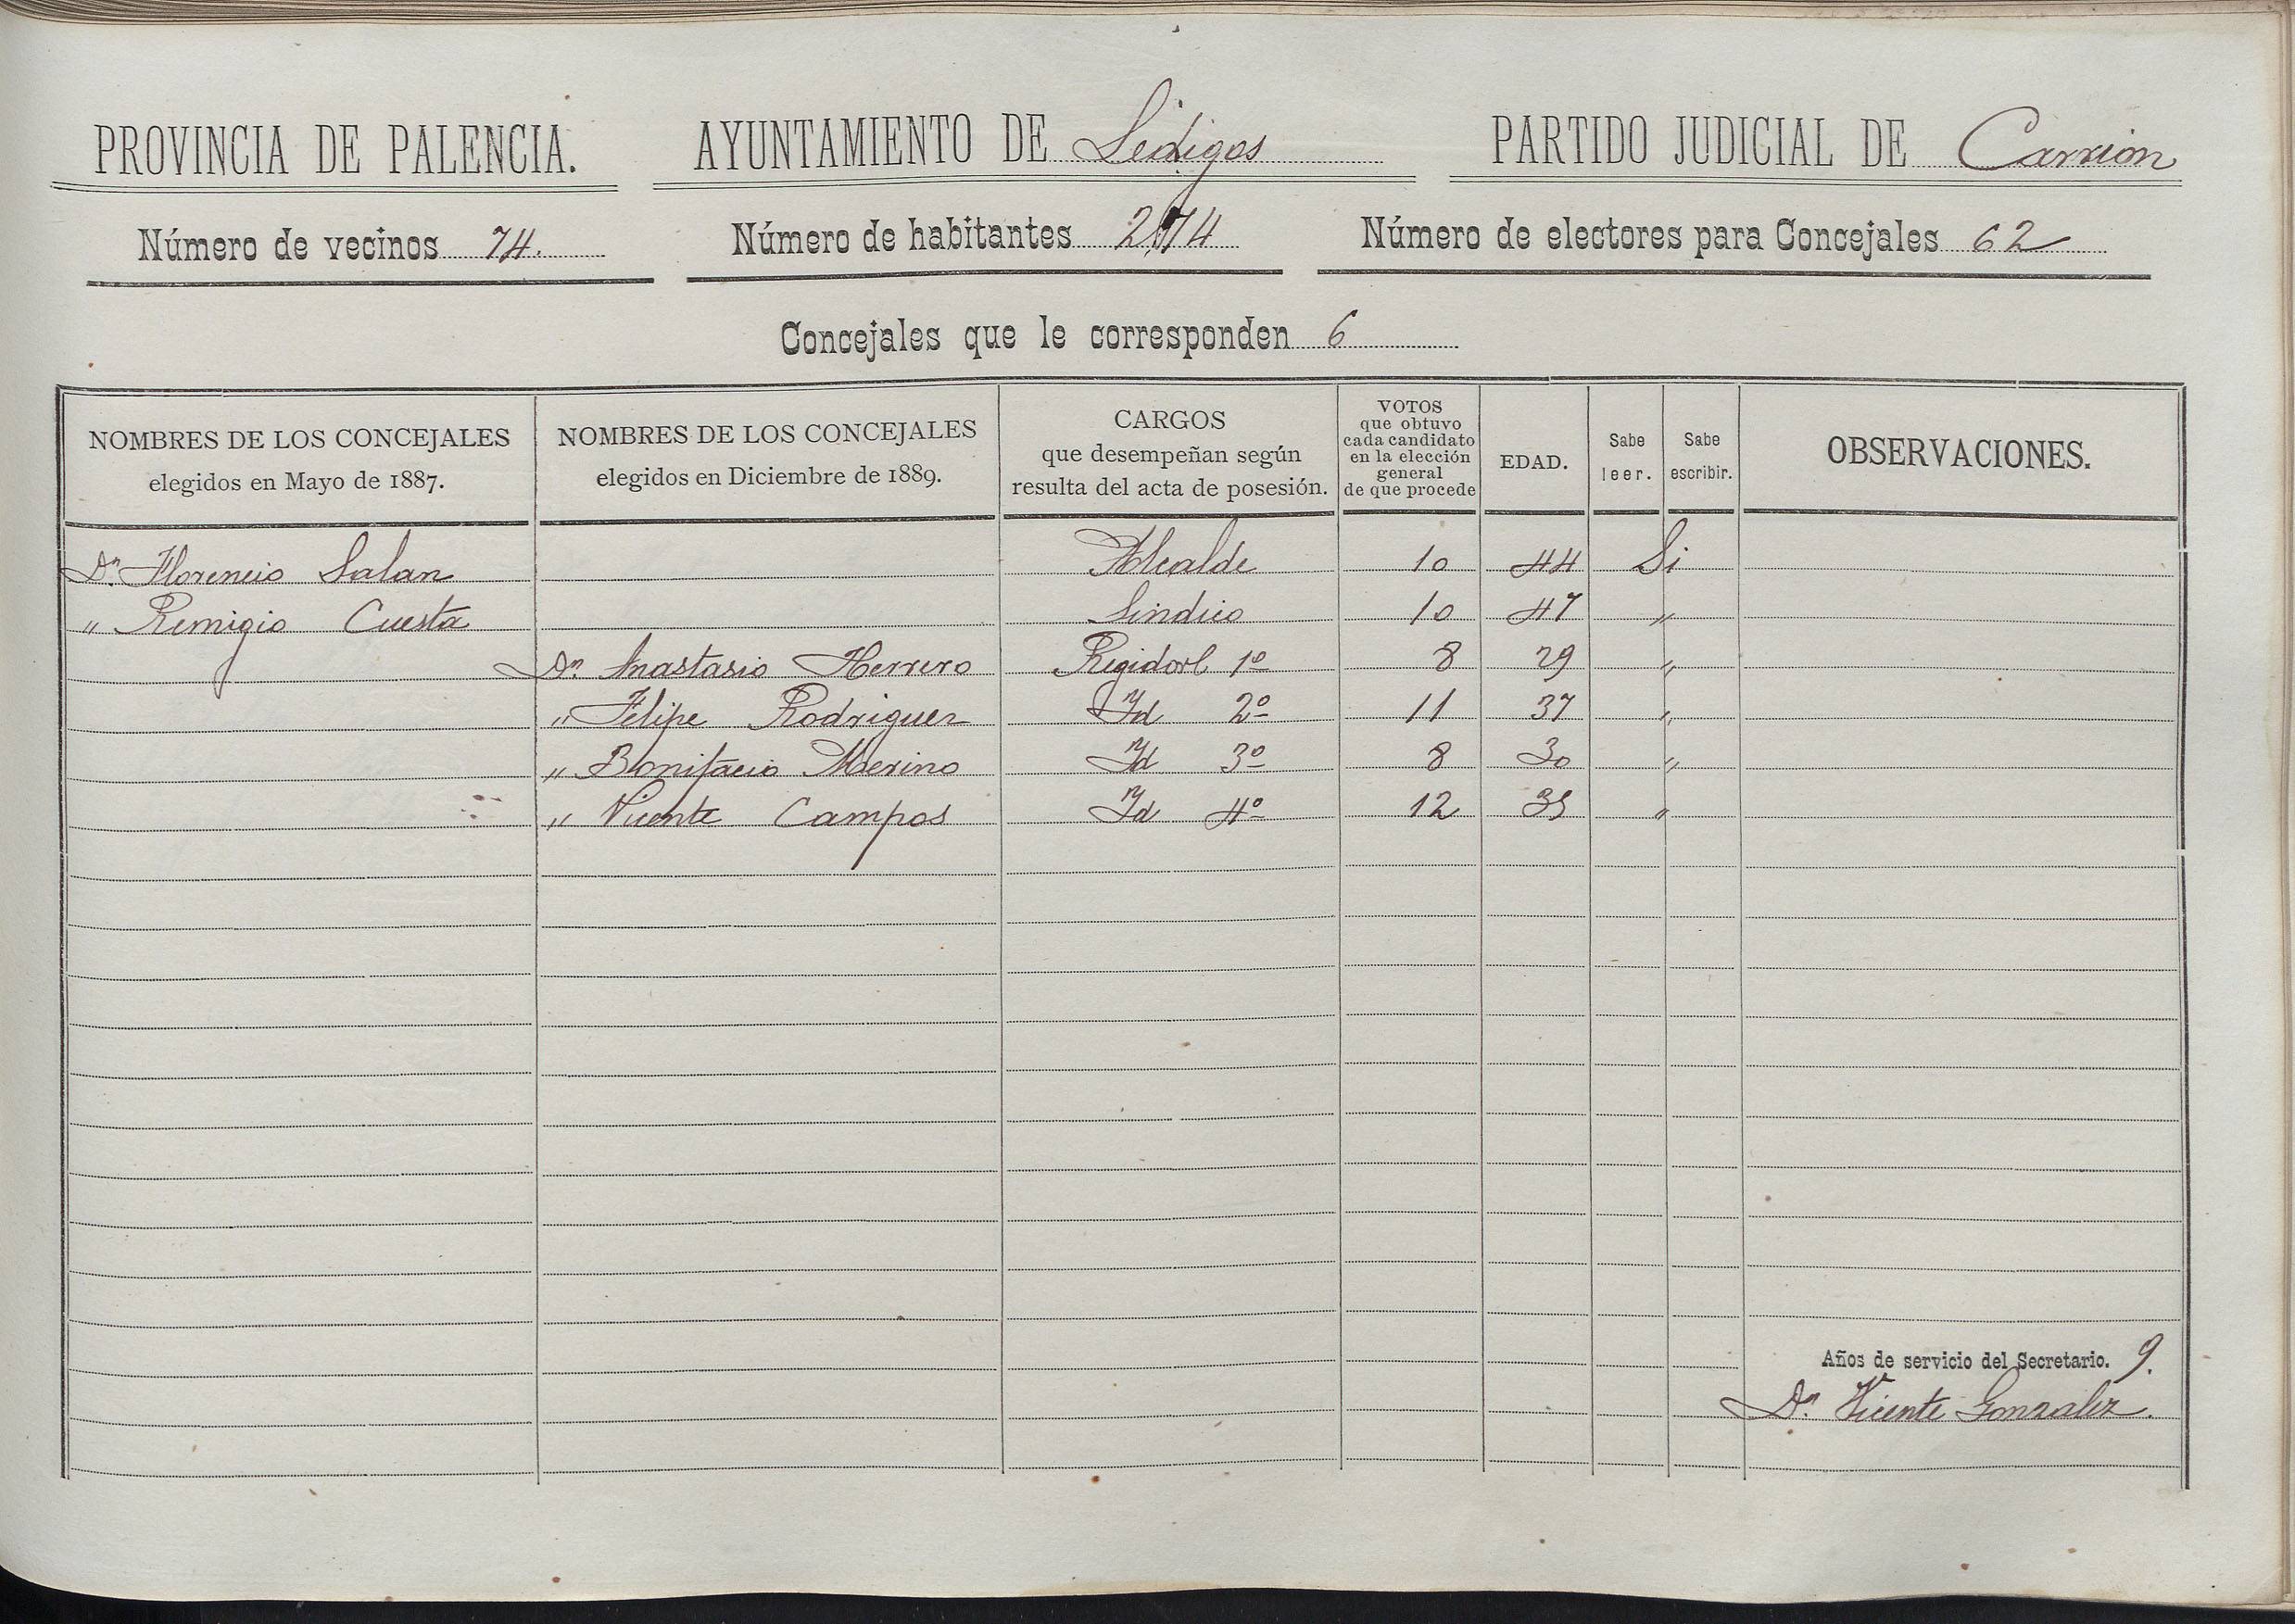 PROVINCIA DE PALENCIA. AYUNTAMIENTO DE Ledigos PARTIDO JUDICIAL DE Carrion
Número de vecinos 74. Número de habitantes 274 Número de electores para Concejales 62
Concejales que le corresponden 6
NOMBRES DE LOS CONCEJALES
elegidos en Mayo de 1887.
NOMBRES DE LOS CONCEJALES
elegidos en Diciembre de 1889.
CARGOS
que desempeñan según
resulta del acta de posesión.
VOTOS
que obtuvo
cada candidato
en la elección
general
de que procede
EDAD.
Sabe
leer.
Sabe
escribir.
OBSERVACIONES.
Dn. Florencio Salan Alcalde 10 44 Si
" Remigio Cuesta Sindico 10 47 "
Dn. Anastasio Herrero Regidor 1º 8 29 "
" Felipe Rodriguez Id 2º 11 37 "
" Bonifacio Merino Id 3º 8 30 "
" Vicente Campos Id 4º 12 35 "
Años de servicio del Secretario. 9.
Dn. Vicente Gonzalez.